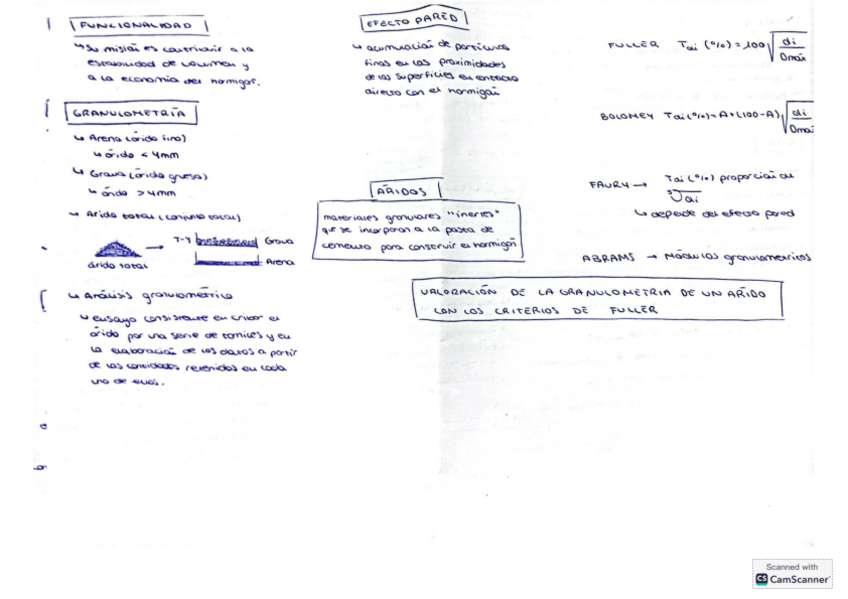 FUNCIONALIDAD
↳ Su misión es contribuir a la
estabilidad de volumen y
a la economía del hormigón.
GRANULOMETRÍA
↳ Arena (árido fino)
↳ árido < 4mm
↳ Grava (árido grueso)
↳ árido > 4mm
↳ Árido total (conjunto total)
árido total
→ T-4
Grava
Arena
↳ Análisis granulométrico
↳ ensayo consistente en cribar el
árido por una serie de tamices y en
la elaboración de los datos a partir
de las cantidades retenidas en cada
uno de ellos.
EFECTO PARED
↳ acumulación de partículas
finas en las proximidades
de las superficies en contacto
directo con el hormigón
ÁRIDOS
materiales granulares "inertes"
que se incorporan a la pasta de
cemento para construir el hormigón
FULLER Tai (%) = 100 √(di / Dmax)
BOLOMEY Tai (%) = A + (100 - A) √(di / Dmax)
FAURY → Tai (%) proporción de
⁵√di
↳ depende del efecto pared
ABRAMS → Módulos granulométricos
VALORACIÓN DE LA GRANULOMETRIA DE UN ÁRIDO
CON LOS CRITERIOS DE FULLER
Scanned with
CS CamScanner